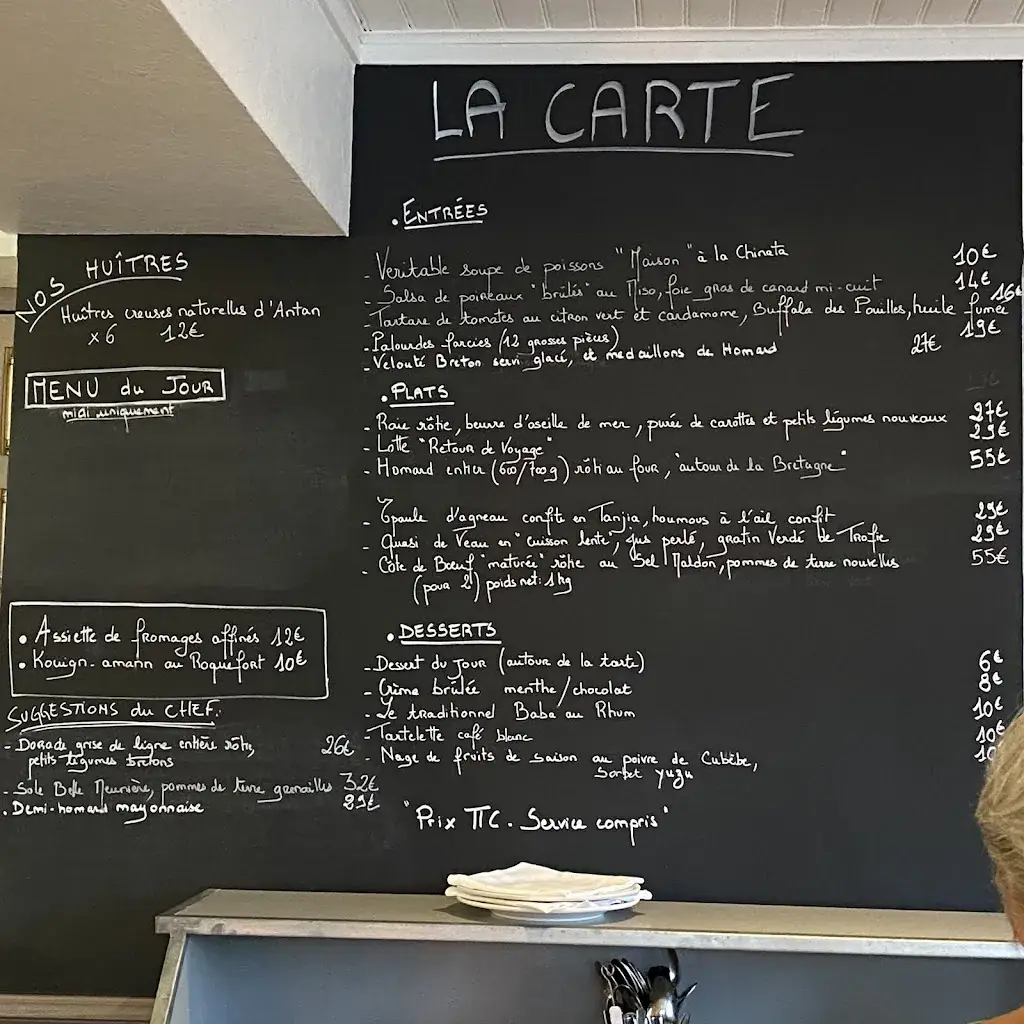 LA CARTE
NOS HUÎTRES
Huîtres creuses naturelles d'Antan
x 6 12€
MENU du JOUR
midi uniquement
• Assiette de fromages affinés 12€
• Kouign-amann au Roquefort 10€
SUGGESTIONS du CHEF:
- Dorade grise de ligne entière rôtie, 26€
petits légumes bretons
- Sole Belle Meunière, pommes de terre grenailles 32€
• Demi-homard mayonnaise 29€
• ENTRÉES
- Veritable soupe de poissons "Maison" à la Chinata 10€
- Salsa de poireaux "brûlés" au Miso, foie gras de canard mi-cuit 14€
- Tartare de tomates au citron vert et cardamome, Buffala des Pouilles, huile fumée 16€
- Palourdes farcies (12 grosses pièces) 19€
- Velouté Breton servi glacé, et medaillons de Homard 27€
• PLATS
- Raie rôtie, beurre d'oseille de mer, purée de carottes et petits légumes nouveaux 27€
- Lotte "Retour de Voyage" 29€
- Homard entier (600/700g) rôti au four, "autour de la Bretagne" 55€
- Epaule d'agneau confite en Tanjia, houmous à l'ail confit 29€
- Quasi de Veau en "cuisson lente", jus perlé, gratin Verdi de Trofie 29€
- Côte de Bœuf "maturée" rôtie au Sel Maldon, pommes de terre nouvelles 55€
(pour 2) poids net: 1kg
• DESSERTS
- Dessert du jour (autour de la tarte) 6€
- Crème brûlée menthe/chocolat 8€
- Le traditionnel Baba au Rhum 10€
- Tartelette café blanc 10€
- Nage de fruits de saison au poivre de Cubèbe, 10
Sorbet yuzu
"Prix TTC. Service compris"